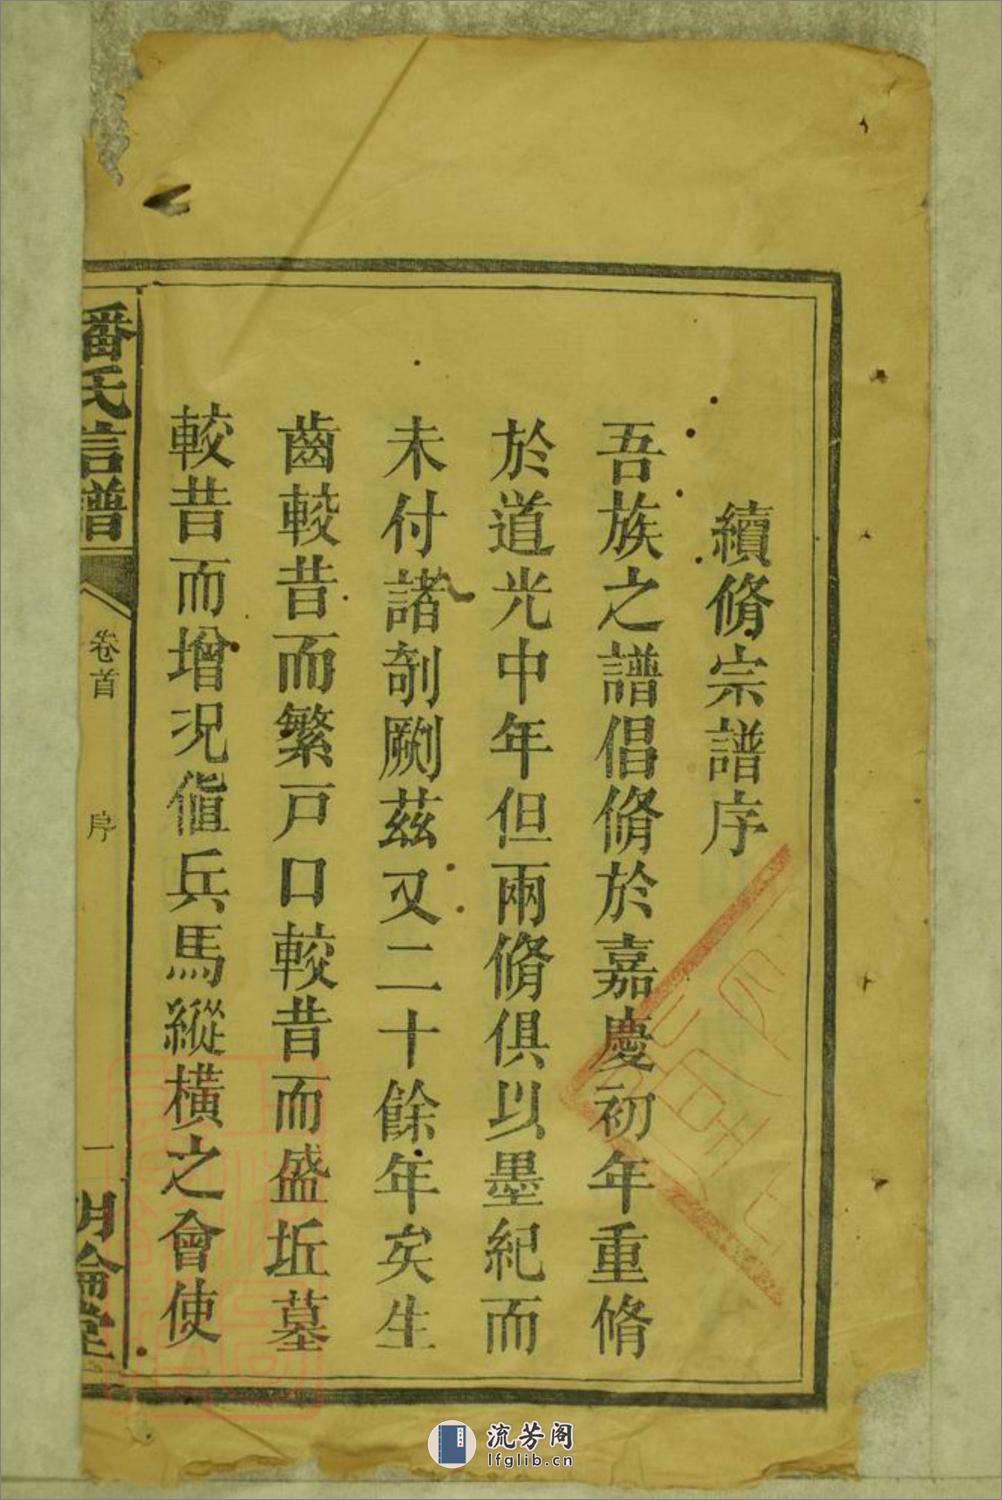 續脩宗譜序
吾族之譜倡脩於嘉慶初年重脩
於道光中年但兩脩俱以墨紀而
未付諸剞劂茲又二十餘年矣生
齒較昔而繁戸口較昔而盛坵墓
較昔而增况値兵馬縱橫之會使
潘氏信譜
卷首
序
一
明倫堂
流芳阁
lfglib.cn